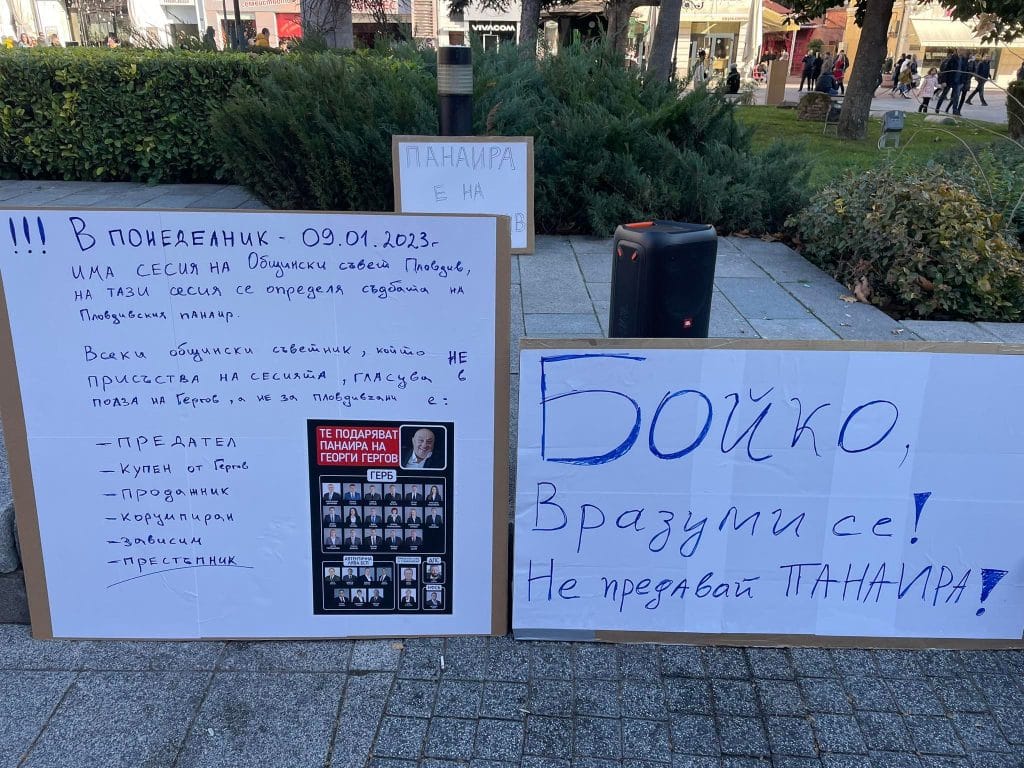 VIVACOM
ПАНАИРА
Е НА
!!! В ПОНЕДЕЛНИК - 09.01.2023г
ИМА СЕСИЯ НА Общински съвет Пловдив,
НА ТАЗИ СЕСИЯ СЕ ОПРЕДЕЛЯ СЪДБАТА НА
Пловдивския ПАНАИР.
Всеки общински съветник, който НЕ
ПРИСЪСТВА НА СЕСИЯТА, ГЛАСУВА В
ПОЛЗА НА Гергов, а не за Пловдивчани е:
- ПРЕДАТЕЛ
- Купен от Гергов
- Продажник
- Корумпиран
- Зависим
- ПРЕСТЪПНИК
ТЕ ПОДАРЯВАТ
ПАНАИРА НА
ГЕОРГИ ГЕРГОВ
ГЕРБ
JBL
Бойко,
Вразуми се!
Не предавай ПАНАИРА!